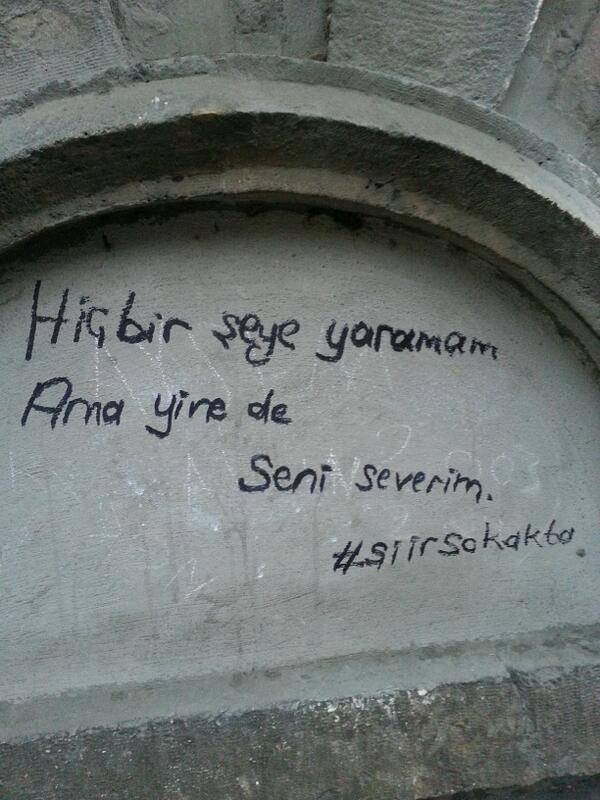 Hiçbir şeye yaramam
Ama yine de
Seni severim.
#siirsokakta